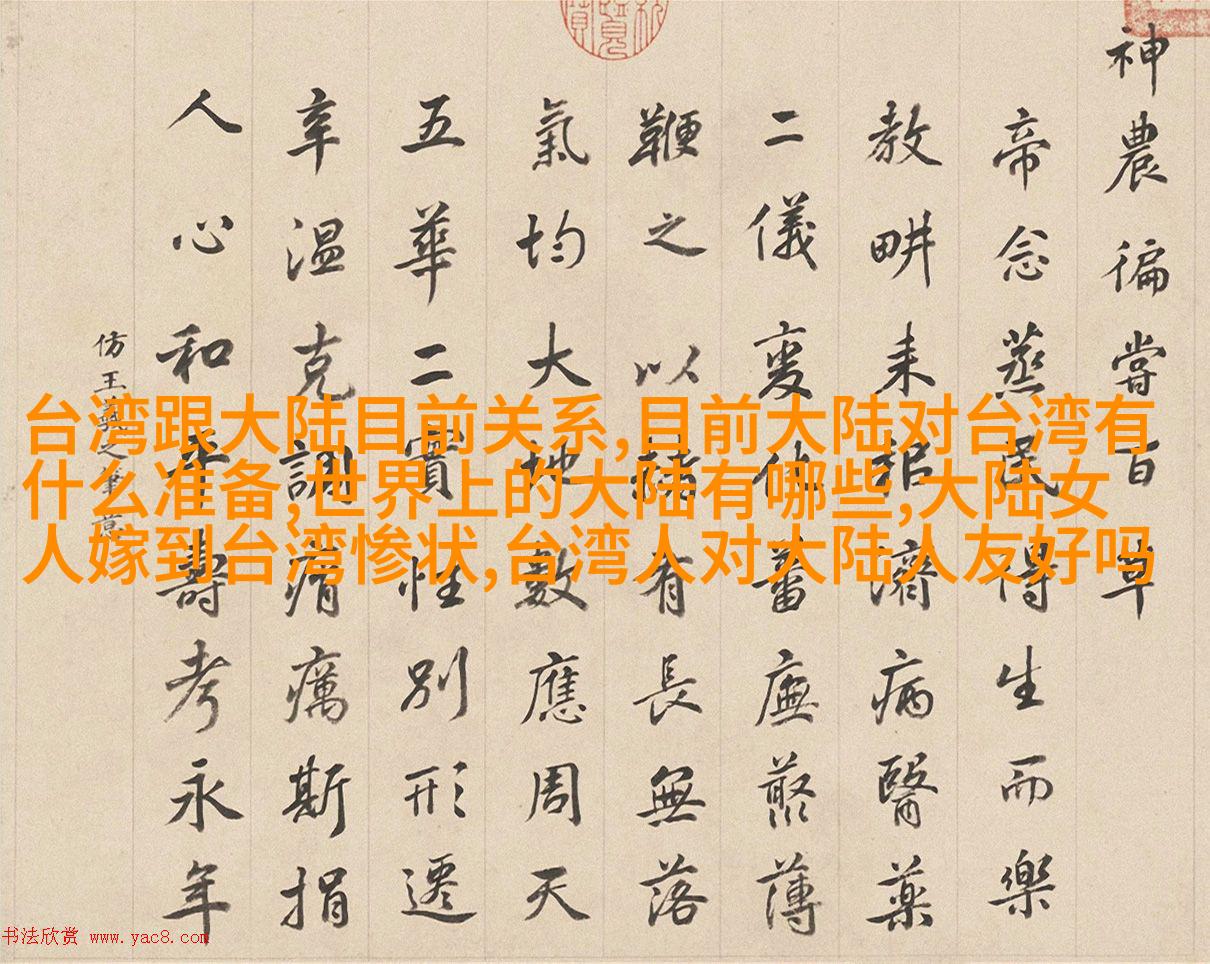 神農徧嘗百草
帝念蒸民得生而樂
教畊耒耜濟病醫藥
二儀变化蕃廡藂薄
鞭之以赭有長無落
氣均大地數應周天
五華二實性別形遷
辛温克調瘠癘斯捐
人心和平壽考永年
仿王羲之筆意
台湾跟大陆目前关系,目前大陆对台湾有
什么准备,世界上的大陆有哪些,大陆女
人嫁到台湾惨状,台湾人对大陆人友好吗
书法欣赏 www.yac8.com